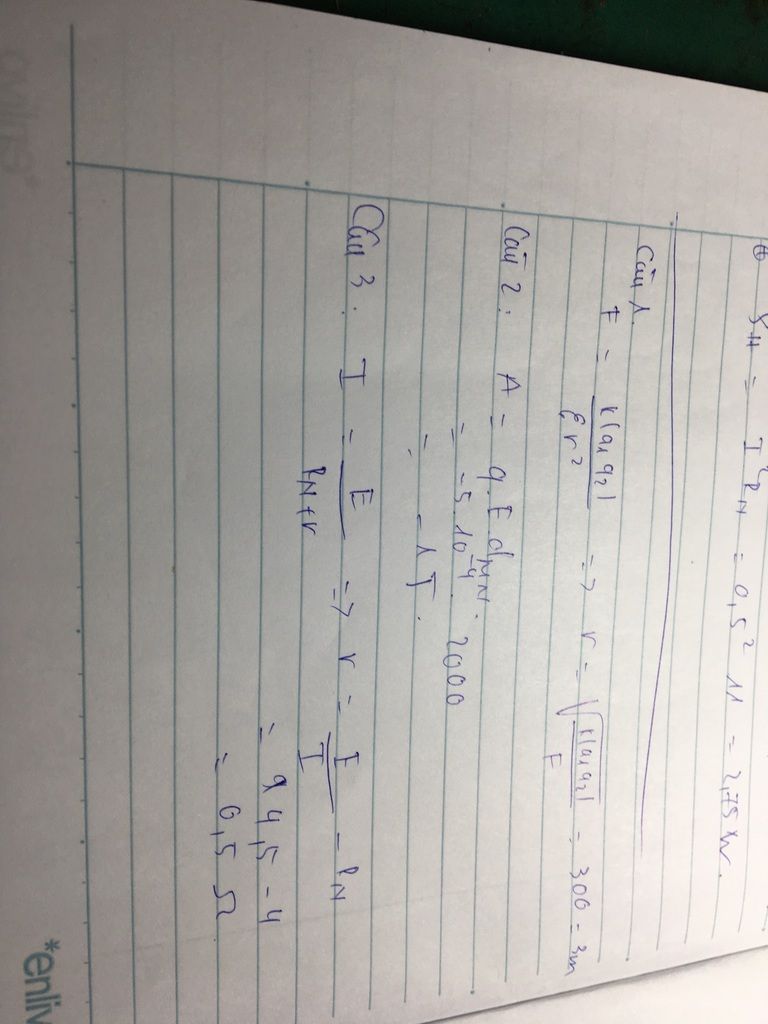 = I²R_N = 0,5² 11 = 2,75 W.
Câu 1.
F = k|q₁q₂| / εr² => r = √(k|q₁q₂| / F) = 300 = 3m
Câu 2: A = q.E d_MN.
= -5.10⁻⁴. 2000
= -1J.
Câu 3: I = E / R_N+r => r = E / I - R_N
= 4,5 - 4
= 0,5 Ω
*enliv